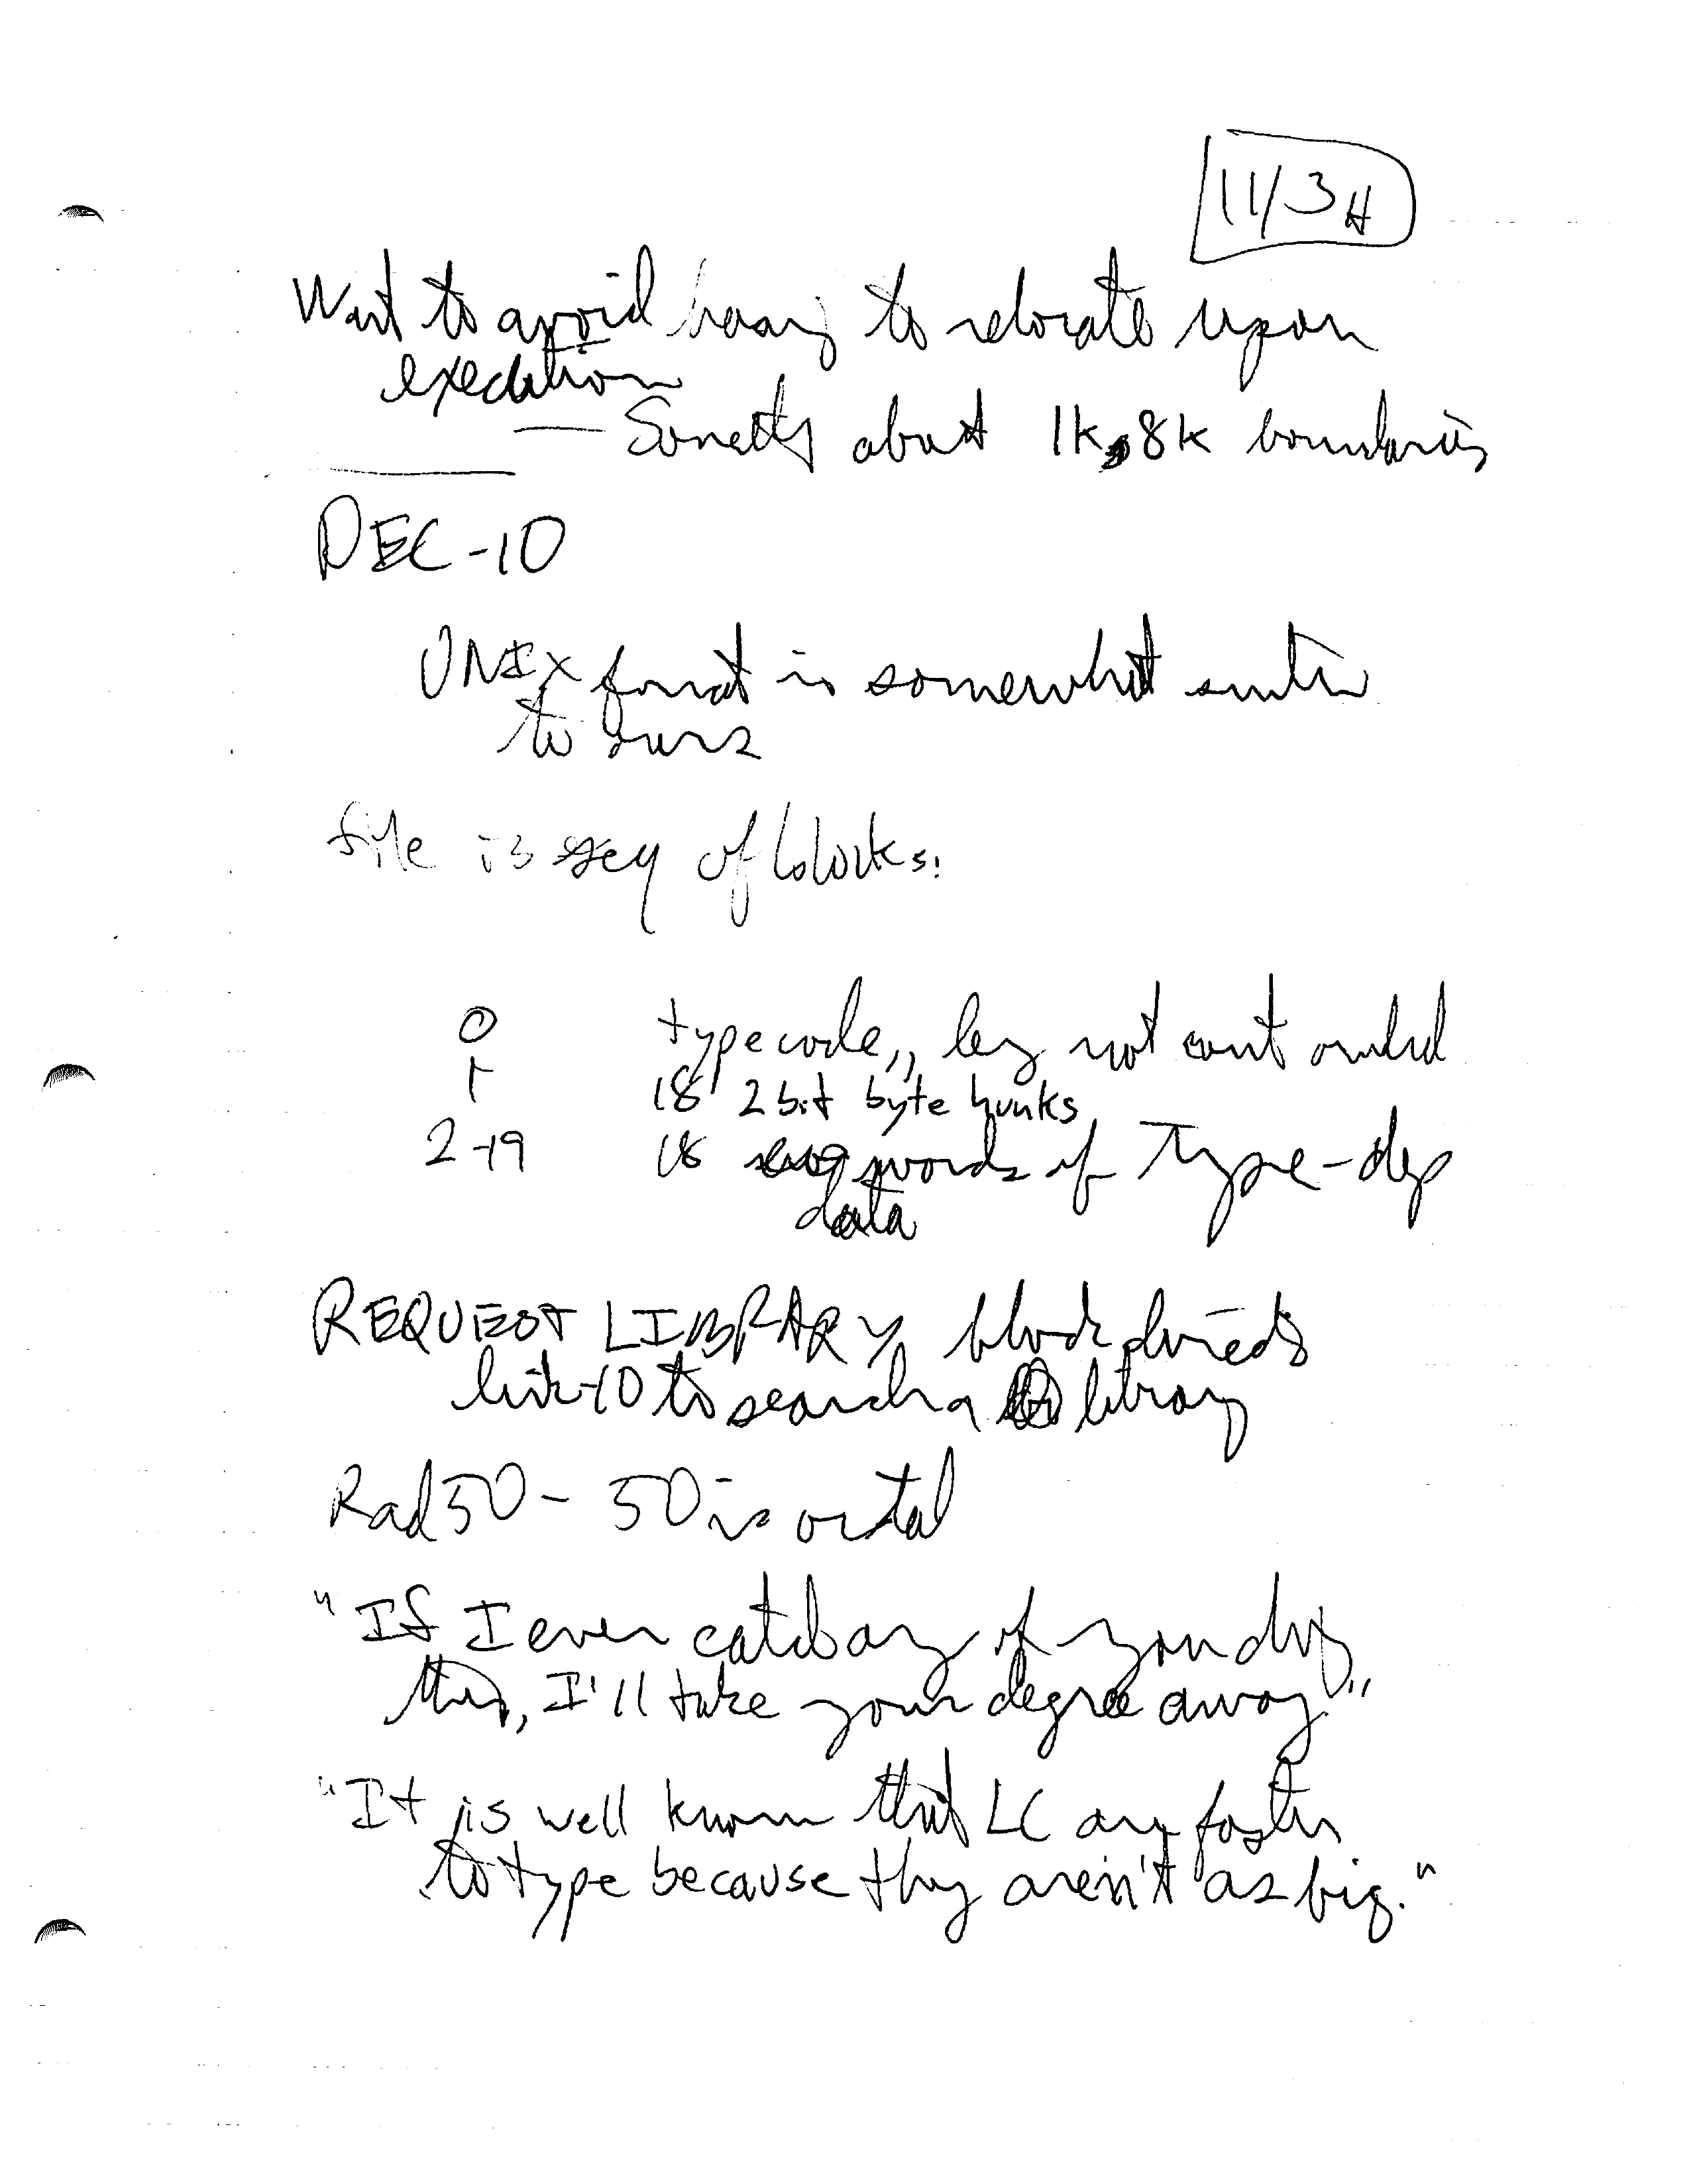 11/3
Want to avoid having to relocate upon
execution
— Something about 1k, 8k boundaries
DEC-10
UNIX format is somewhat similar
to ours
file is seq of blocks:
0 typecode,, leng not count ovrhd
1 18 2 bit byte hunks
2-19 18 words of type-dep
data
REQUEST LIBRARY block directs
link-10 to search a library
Rad50 - 50 is octal
"If I ever catch any of you doing
this, I'll take your degree away."
"It is well known that LC are faster
to type because they aren't as big."